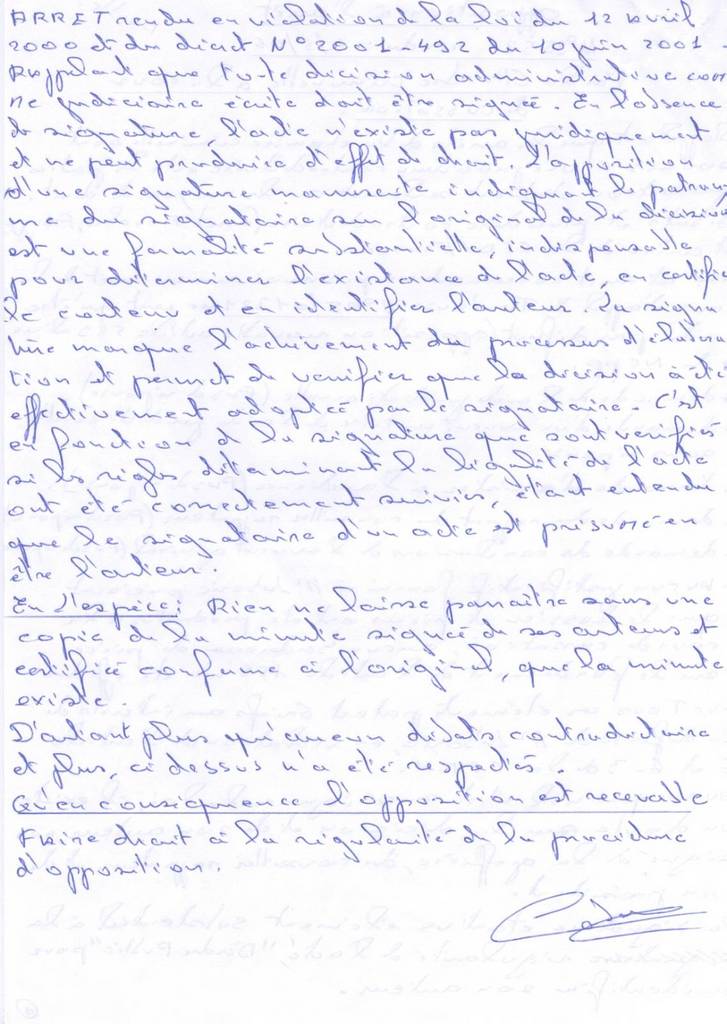 ARRET rendu en violation de la loi du 12 avril
2000 et du décret N° 2001-492 du 10 juin 2001
Rappelant que toute décision administrative com
me judiciaire écrite doit être signée. En l'absence
de signature l'acte n'existe pas juridiquement
et ne peut produire d'effet de droit. L'apposition
d'une signature manuscrite indiquant le patrony
me du signataire sur l'original de la décision
est une formalité substantielle, indispensable
pour déterminer l'existance de l'acte, en certifie
le contenu et en identifier l'auteur. La signa
ture marque l'achèvement du processus d'élabora
tion et permet de vérifier que la décision à été
effectivement adoptée par le signataire. C'est
en fonction de la signature que sont vérifiés
si les règles déterminant la légalité de l'acte
ont été correctement suivies, étant entendu
que le signataire d'un acte est présumé en
être l'auteur.
En l'espèce: Rien ne laisse paraître sans une
copie de la minute signée de ses auteurs et
certifiée conforme à l'original que la minute
existe.
D'autant plus qu'aucun débats contradictoire
et plus, ci dessus n'a été respectés.
Qu'en conséquence l'opposition est recevable
Faire droit à la régularité de la procédure
d'opposition.